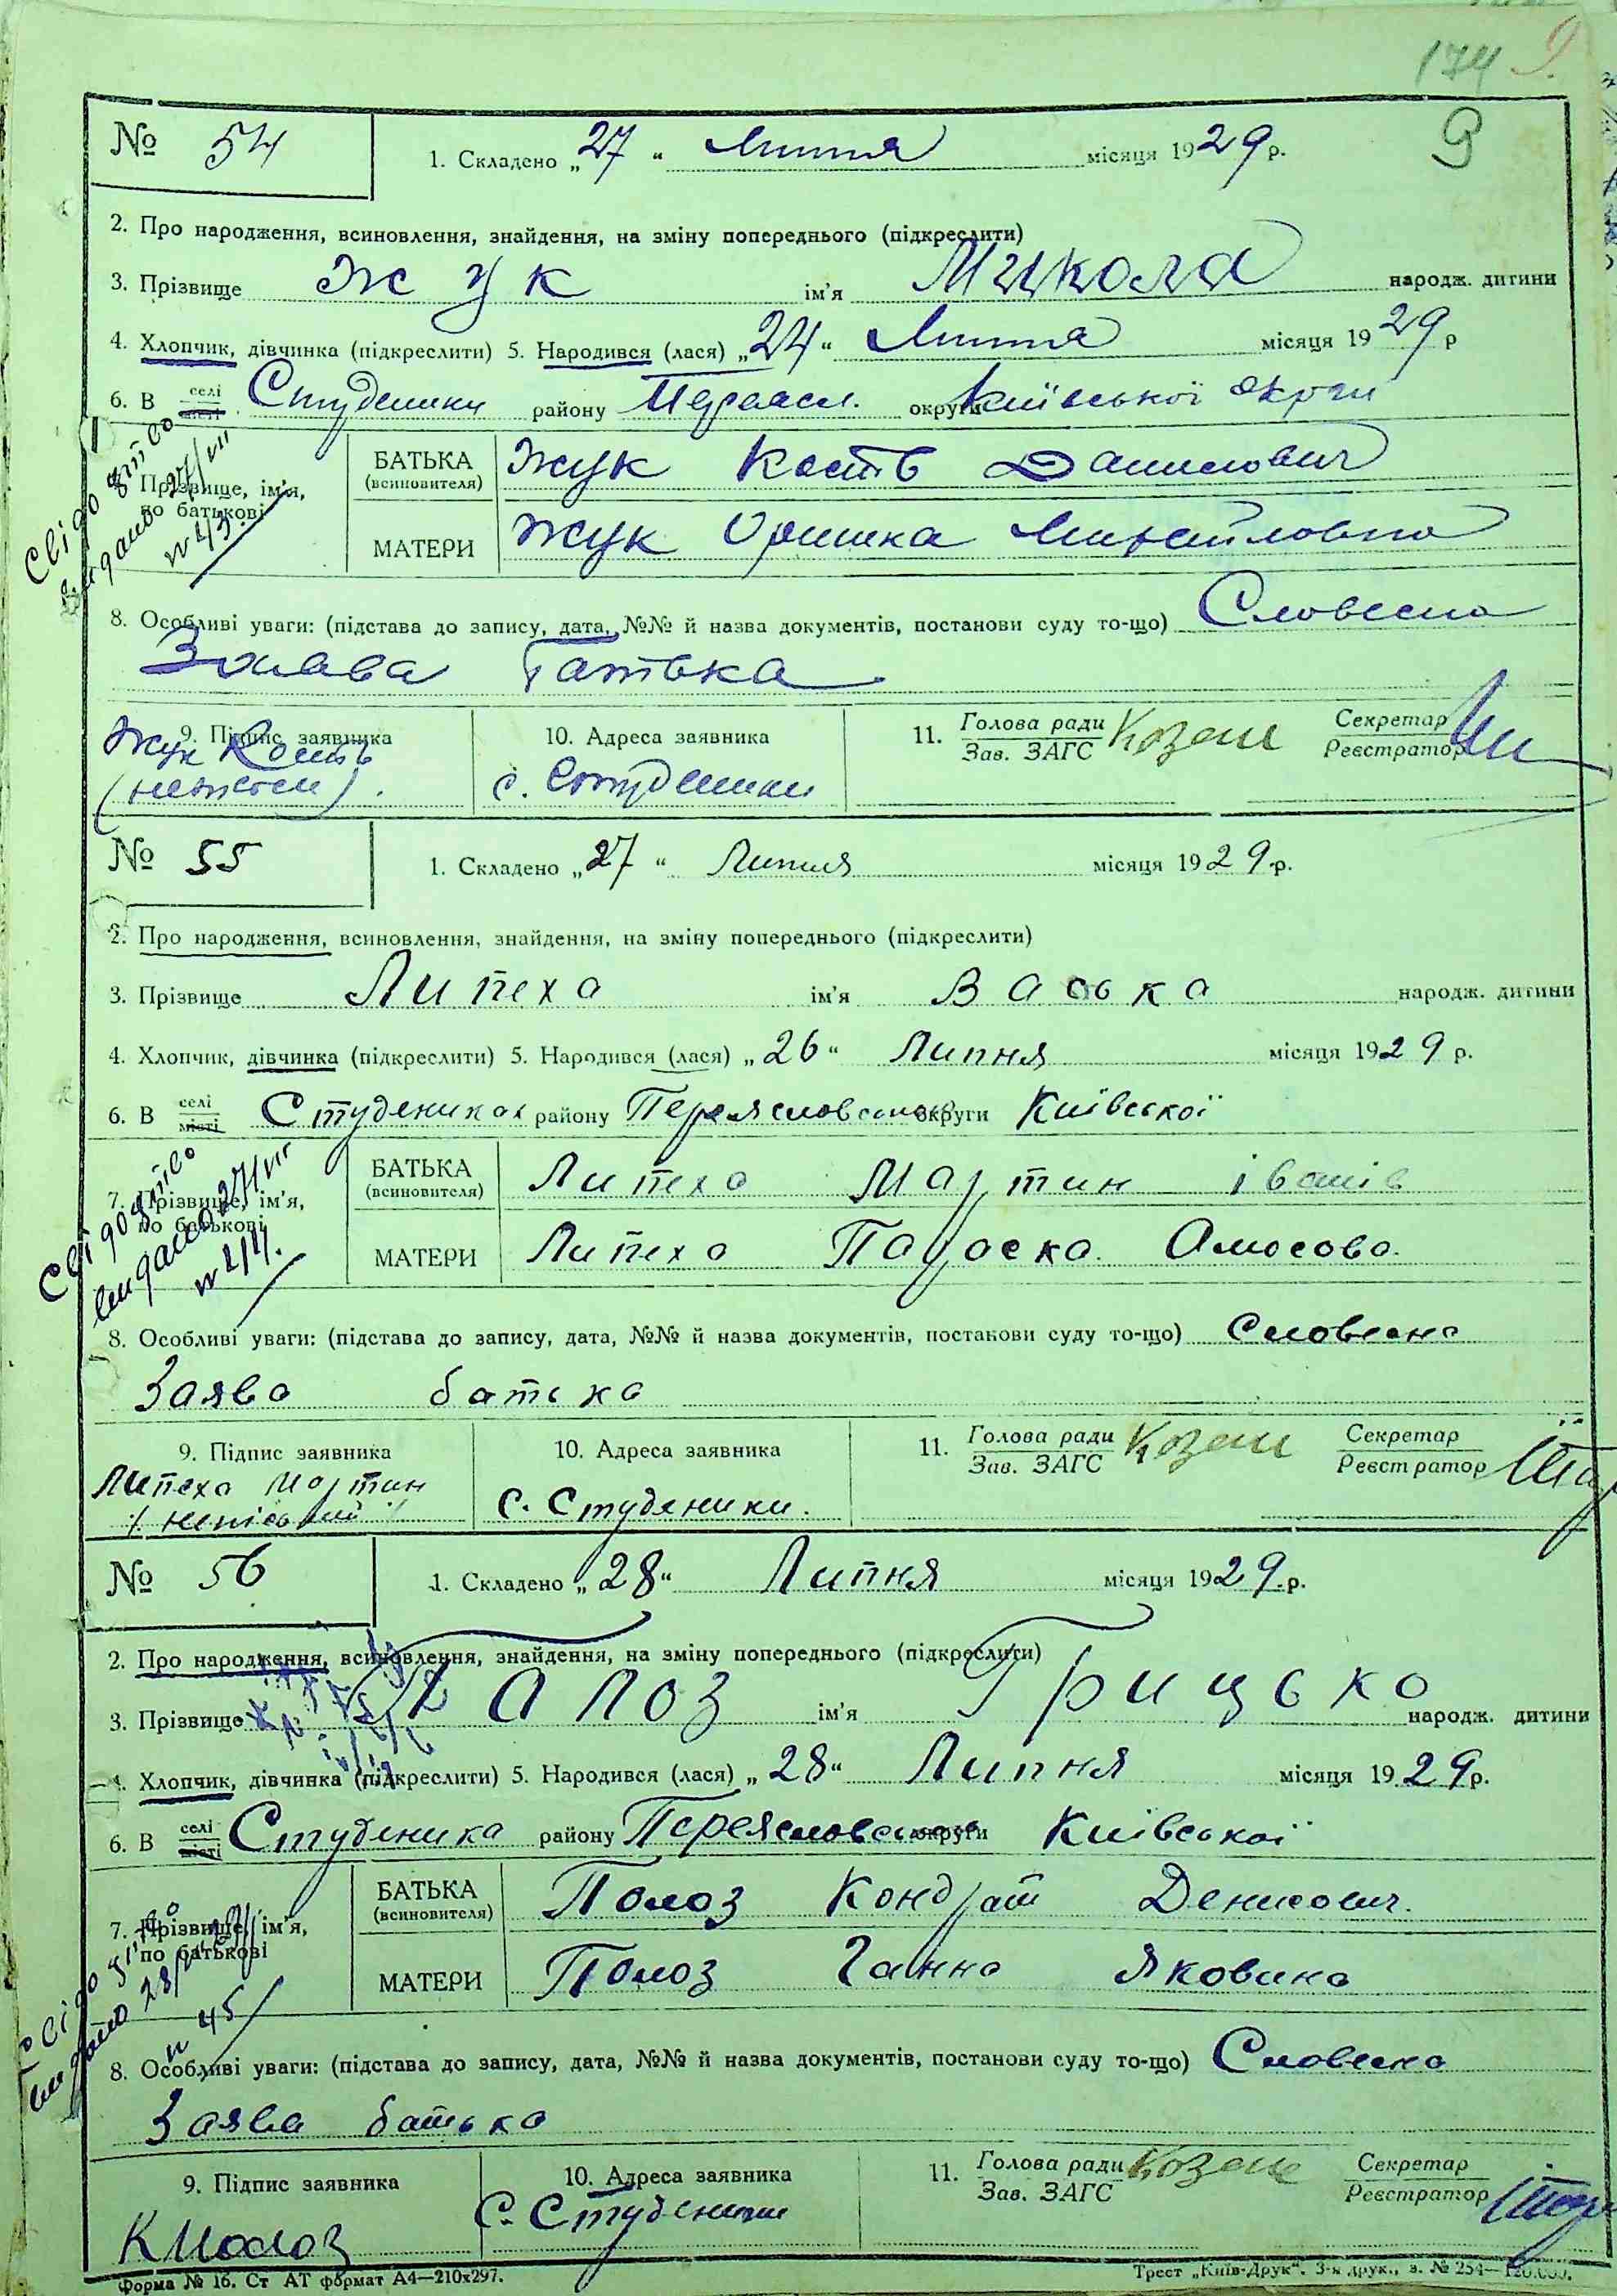 174 9.
9
№ 54
1. Складено „27“ Липня місяця 1929 р.
2. Про народження, всиновлення, знайдення, на зміну попереднього (підкреслити)
3. Прізвище Жук ім'я Микола народж. дитини
4. Хлопчик, дівчинка (підкреслити) 5. Народився (лася) „24“ Липня місяця 1929 р
6. В селі місті Студеники району Переясл. округи Київської округи
Свідоцтво видано 27/VII № 43.
Прізвище, ім'я, по батькові
БАТЬКА (всиновителя) Жук Кость Данилович
МАТЕРИ Жук Оришка Михайловна
8. Особливі уваги: (підстава до запису, дата, №№ й назва документів, постанови суду то-що) Словесна
Заява батька
9. Підпис заявника
Жук Кость
10. Адреса заявника
с. Студеники
11. Голова ради Зав. ЗАГС Козач
Секретар Реєстратор
№ 55
1. Складено „27“ Липня місяця 1929 р.
2. Про народження, всиновлення, знайдення, на зміну попереднього (підкреслити)
3. Прізвище Липеха ім'я Васька народж. дитини
4. Хлопчик, дівчинка (підкреслити) 5. Народився (лася) „26“ Липня місяця 1929 р.
6. В селі місті Студениках району Переясловського округи Київської
Свідоцтво видано 27/VII № 44.
7. Прізвище, ім'я, по батькові
БАТЬКА (всиновителя) Липеха Мартин Іванів
МАТЕРИ Липеха Параска Амосова.
8. Особливі уваги: (підстава до запису, дата, №№ й назва документів, постанови суду то-що) Словесна
Заява батька
9. Підпис заявника
Липеха Мартин
10. Адреса заявника
с. Студеники.
11. Голова ради Зав. ЗАГС Козач
Секретар Реєстратор
№ 56
1. Складено „28“ Липня місяця 1929 р.
2. Про народження, всиновлення, знайдення, на зміну попереднього (підкреслити)
3. Прізвище Палоз ім'я Грицько народж. дитини
4. Хлопчик, дівчинка (підкреслити) 5. Народився (лася) „28“ Липня місяця 1929 р.
6. В селі місті Студеника району Переясловського округи Київської
Свідоцтво видано 28/VII № 45
7. Прізвище, ім'я, по батькові
БАТЬКА (всиновителя) Полоз Кондрат Денисович.
МАТЕРИ Полоз Ганна Яковина
8. Особливі уваги: (підстава до запису, дата, №№ й назва документів, постанови суду то-що) Словесна
Заява батька
9. Підпис заявника
К Полоз
10. Адреса заявника
С. Студеники
11. Голова ради Зав. ЗАГС Козач
Секретар Реєстратор
Форма № 16. Ст АТ формат А4—210х297.
Трест „Київ-Друк“. 3-я друк., з. № 254—120.000.